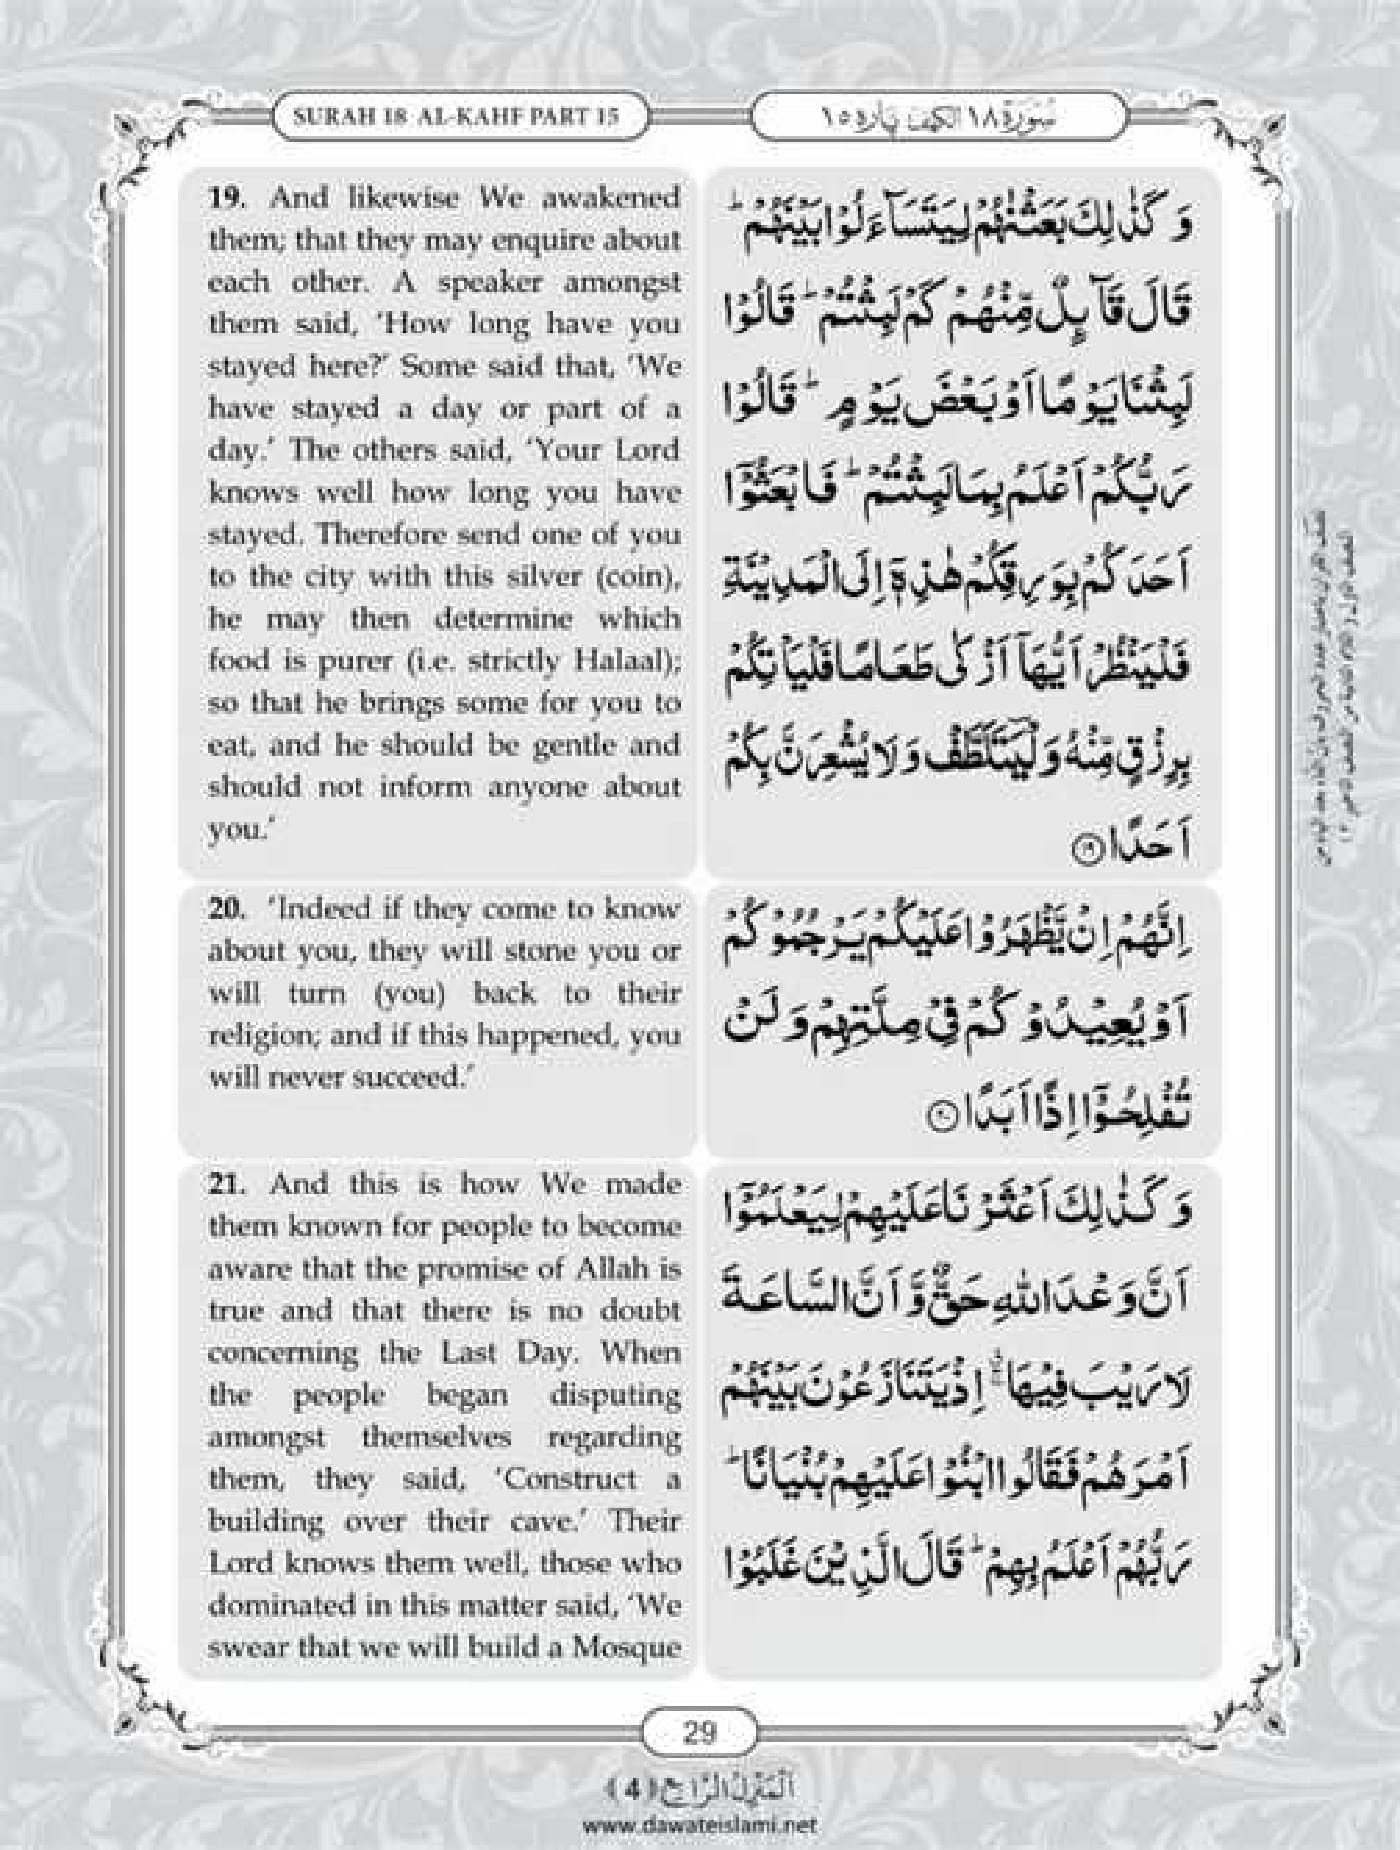 SURAH 18 AL-KAHF PART 15
سُوْرَة ١٨ الكهف پاره ١٥
19. And likewise We awakened
them; that they may enquire about
each other. A speaker amongst
them said, ‘How long have you
stayed here?’ Some said that, ‘We
have stayed a day or part of a
day.’ The others said, ‘Your Lord
knows well how long you have
stayed. Therefore send one of you
to the city with this silver (coin),
he may then determine which
food is purer (i.e. strictly Halaal);
so that he brings some for you to
eat, and he should be gentle and
should not inform anyone about
you.’
وَ كَذٰلِكَ بَعَثْنٰهُمْ لِيَتَسَآءَلُوْا بَيْنَهُمْ ؕ
قَالَ قَآىِٕلٌ مِّنْهُمْ كَمْ لَبِثْتُمْ ؕ قَالُوْا
لَبِثْنَا يَوْمًا اَوْ بَعْضَ يَوْمٍ ؕ قَالُوْا
رَبُّكُمْ اَعْلَمُ بِمَا لَبِثْتُمْ ؕ فَابْعَثُوْۤا
اَحَدَكُمْ بِوَرِقِكُمْ هٰذِهٖۤ اِلَى الْمَدِيْنَةِ
فَلْيَنْظُرْ اَيُّهَاۤ اَزْكٰى طَعَامًا فَلْيَاْتِكُمْ
بِرِزْقٍ مِّنْهُ وَ لْيَتَلَطَّفْ وَ لَا يُشْعِرَنَّ بِكُمْ
اَحَدًا ۱۹
20. ‘Indeed if they come to know
about you, they will stone you or
will turn (you) back to their
religion; and if this happened, you
will never succeed.’
اِنَّهُمْ اِنْ يَّظْهَرُوْا عَلَيْكُمْ يَرْجُمُوْكُمْ
اَوْ يُعِيْدُوْكُمْ فِيْ مِلَّتِهِمْ وَ لَنْ
تُفْلِحُوْۤا اِذًا اَبَدًا ۲۰
21. And this is how We made
them known for people to become
aware that the promise of Allah is
true and that there is no doubt
concerning the Last Day. When
the people began disputing
amongst themselves regarding
them, they said, ‘Construct a
building over their cave.’ Their
Lord knows them well, those who
dominated in this matter said, ‘We
swear that we will build a Mosque
وَ كَذٰلِكَ اَعْثَرْنَا عَلَيْهِمْ لِيَعْلَمُوْۤا
اَنَّ وَعْدَ اللّٰهِ حَقٌّ وَّ اَنَّ السَّاعَةَ
لَا رَيْبَ فِيْهَا ۚ اِذْ يَتَنَازَعُوْنَ بَيْنَهُمْ
اَمْرَهُمْ فَقَالُوا ابْنُوْا عَلَيْهِمْ بُنْيَانًا ؕ
رَبُّهُمْ اَعْلَمُ بِهِمْ ؕ قَالَ الَّذِيْنَ غَلَبُوْا
29
اَلْمَنْزِلُ الرَّابِع (4)
www.dawateislami.net